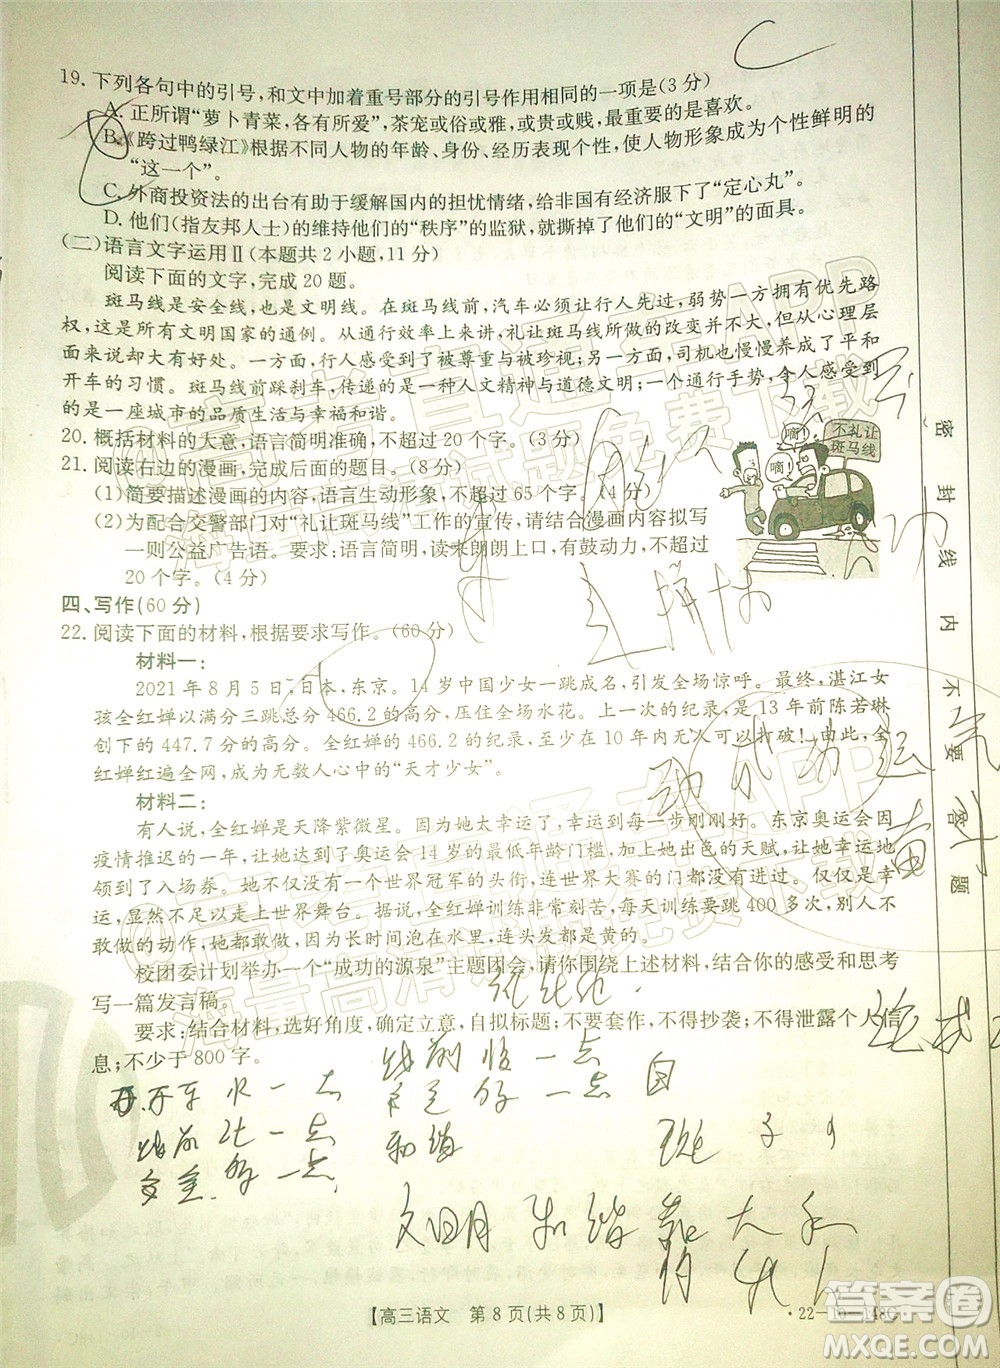 19. 下列各句中的引号,和文中加着重号部分的引号作用相同的一项是(3分)
A. 正所谓“萝卜青菜,各有所爱”,茶宠或俗或雅,或贵或贱,最重要的是喜欢。
B.《跨过鸭绿江》根据不同人物的年龄、身份、经历表现个性,使人物形象成为个性鲜明的
“这一个”。
C. 外商投资法的出台有助于缓解国内的担忧情绪,给非国有经济服下了“定心丸”。
D. 他们(指友邦人士)的维持他们的“秩序”的监狱,就撕掉了他们的“文明”的面具。
(二)语言文字运用Ⅱ(本题共2小题,11分)
阅读下面的文字,完成20题。
斑马线是安全线,也是文明线。在斑马线前,汽车必须让行人先过,弱势一方拥有优先路
权,这是所有文明国家的通例。从通行效率上来讲,礼让斑马线所做的改变并不大,但从心理层
面来说却大有好处。一方面,行人感受到了被尊重与被珍视;另一方面,司机也慢慢养成了平和
开车的习惯。斑马线前踩刹车,传递的是一种人文精神与道德文明;一个通行手势,令人感受到
的是一座城市的品质生活与幸福和谐。
20. 概括材料的大意,语言简明准确,不超过20个字。(3分)
21. 阅读右边的漫画,完成后面的题目。(8分)
(1)简要描述漫画的内容,语言生动形象,不超过65个字。(4分)
(2)为配合交警部门对“礼让斑马线”工作的宣传,请结合漫画内容拟写
一则公益广告语。要求:语言简明,读来朗朗上口,有鼓动力,不超过
20个字。(4分)
嘀!
嘀!
不礼让
斑马线
四、写作(60分)
22. 阅读下面的材料,根据要求写作。(60分)
材料一:
2021年8月5日,日本,东京。14岁中国少女一跳成名,引发全场惊呼。最终,湛江女
孩全红婵以满分三跳总分466.2的高分,压住全场水花。上一次的纪录,是13年前陈若琳
创下的447.7分的高分。全红婵的466.2的纪录,至少在10年内无人可以打破!由此,全
红婵红遍全网,成为无数人心中的“天才少女”。
材料二:
有人说,全红婵是天降紫微星。因为她太幸运了,幸运到每一步刚刚好。东京奥运会因
疫情推迟的一年,让她与奥运会14岁的最低年龄门槛,如此契合,让她出色的天赋,幸运地
迎来了入场券。她不仅没有一个世界冠军的头衔,连世界大赛的门都没有进过。仅仅是幸
运,显然不足以走上世界舞台。据说,全红婵训练非常刻苦,每天训练要跳400多次,男生不
敢做的动作,她都敢做。因为长时间泡在水里,连头发都是黄的。
校团委计划举办一个“成功的源泉”主题团会,请你围绕上述材料,结合你的感受和思考
写一篇发言稿。
要求:结合材料,选好角度,确定立意,自拟标题;不要套作,不得抄袭;不得泄露个人信
息;不少于800字。
【高三语文 第8页(共8页)】
·22-10-148C·
密封线内不要答题
答案圈
MXQE.COM